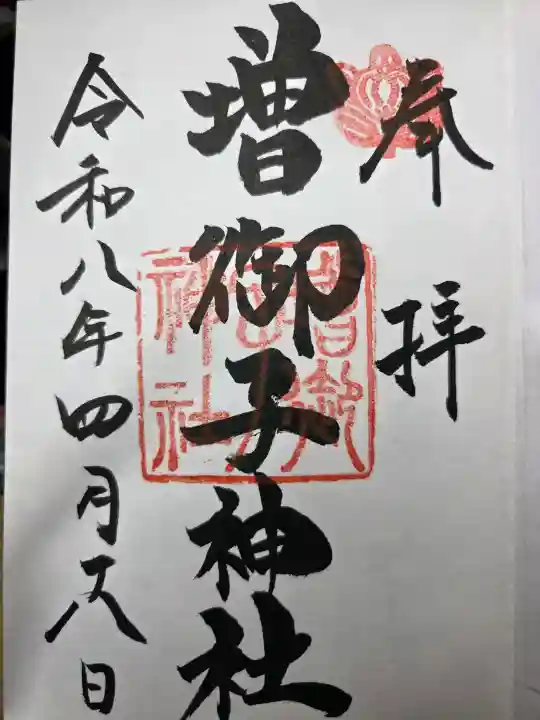 奉拝
増御子神社
令和八年四月十八日